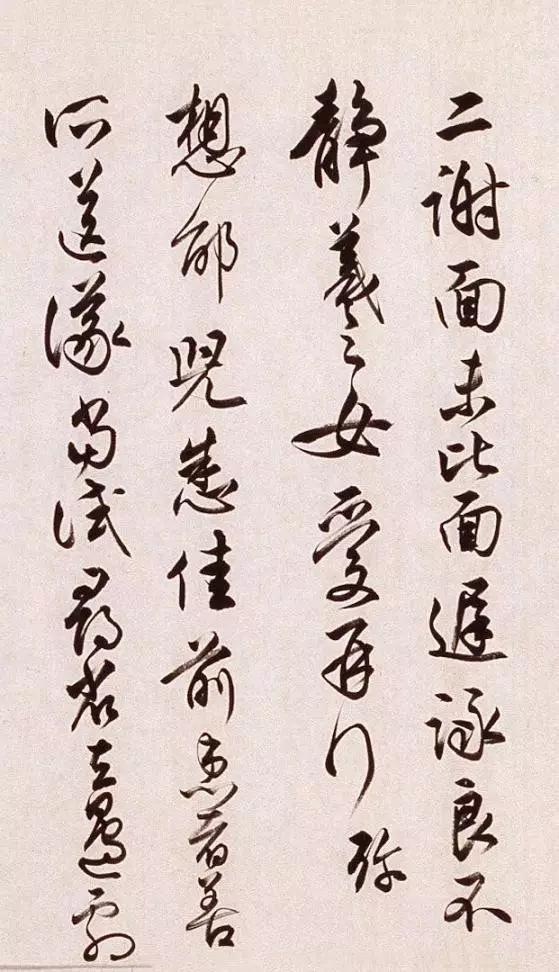 二謝面未比面遲詠良不
靜羲之女愛再拜
想邰兒悉佳前患者善
所送議當試尋省左邊劇